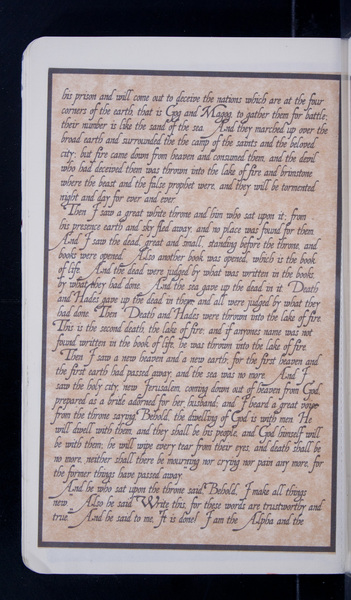 his prison and will come out to deceive the nations which are at the four
corners of the earth, that is Gog and Magog, to gather them for battle;
their number is like the sand of the sea. And they marched up over the
broad earth and surrounded the the camp of the saints and the beloved
city; but fire came down from heaven and consumed them, and the devil
who had deceived them was thrown into the lake of fire and brimstone
where the beast and the false prophet were, and they will be tormented
night and day for ever and ever.
Then I saw a great white throne and him who sat upon it; from
his presence earth and sky fled away, and no place was found for them.
And I saw the dead, great and small, standing before the throne, and
books were opened. Also another book was opened, which is the book
of life. And the dead were judged by what was written in the books,
by what they had done. And the sea gave up the dead in it, Death
and Hades gave up the dead in them, and all were judged by what they
had done. Then Death and Hades were thrown into the lake of fire.
This is the second death, the lake of fire; and if anyones name was not
found written in the book of life, he was thrown into the lake of fire.
Then I saw a new heaven and a new earth; for the first heaven and
the first earth had passed away, and the sea was no more. And I
saw the holy city, new Jerusalem, coming down out of heaven from God,
prepared as a bride adorned for her husband; and I heard a great voice
from the throne saying, "Behold, the dwelling of God is with men. He
will dwell with them, and they shall be his people, and God himself will
be with them; he will wipe every tear from their eyes, and death shall be
no more, neither shall there be mourning nor crying nor pain any more, for
the former things have passed away.
And he who sat upon the throne said, "Behold, I make all things
new." Also he said, "Write this, for these words are trustworthy and
true." And he said to me, "It is done! I am the Alpha and the